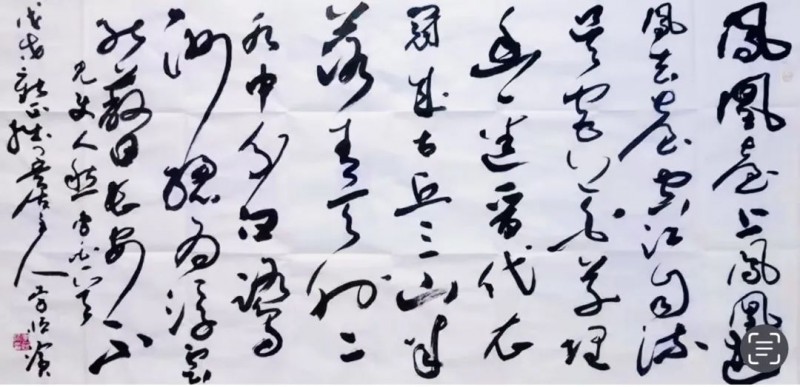 鳳凰臺上鳳凰遊
鳳去臺空江自流
吳宮花草埋
幽徑晉代衣
冠成古丘三山半
落青天外二
水中分白鷺
洲總為浮雲
能蔽日長安不
見使人愁李白
戊戌新正